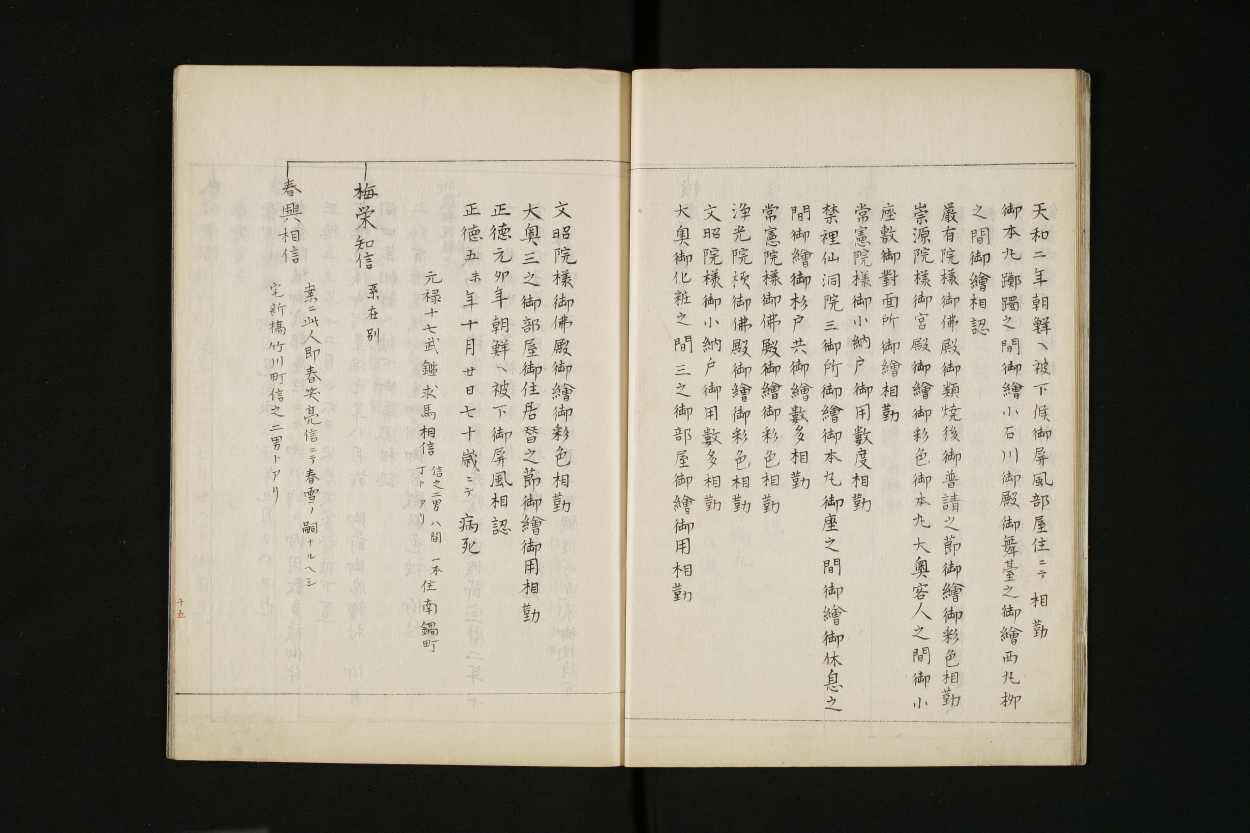 天和二年朝鮮ヘ被下候御屏風部屋住ニテ相勤
御本丸躑躅之間御繪小石川御殿御舞䑓之御繪西丸柳
之間御繪相認
厳有院様御佛殿御類焼後御普請之節御繪御彩色相勤
崇源院様御宮殿御繪御彩色御本丸大奥客人之間御小
座敷御對面所御繪相勤
常憲院様御小納戸御用數度相勤
禁裡仙洞院三御所御繪御本丸御座之間御繪御休息之
間御繪御杉戸共御繪數多相勤
常憲院様御佛殿御繪御彩色相勤
浄光院様御佛殿御繪御彩色相勤
文昭院様御小納戸御用數多相勤
大奥御化粧之間三之御部屋御繪御用相勤
文昭院様御佛殿御繪御彩色相勤
大奥三之御部屋御住居替之節御繪御用相勤
正徳元卯年朝鮮ヘ被下御屏風相認
正徳五未年十月廿日七十歳ニテ病死
元禄十七武鑑求馬相信 信之二男八間一本 住南鍋町
丁トアリ
梅栄知信 系在別
春興相信
案ニ此人即春笑亮信ニテ春雪ノ嗣ナルヘシ
宅新橋竹川町信之二男トアリ
十五